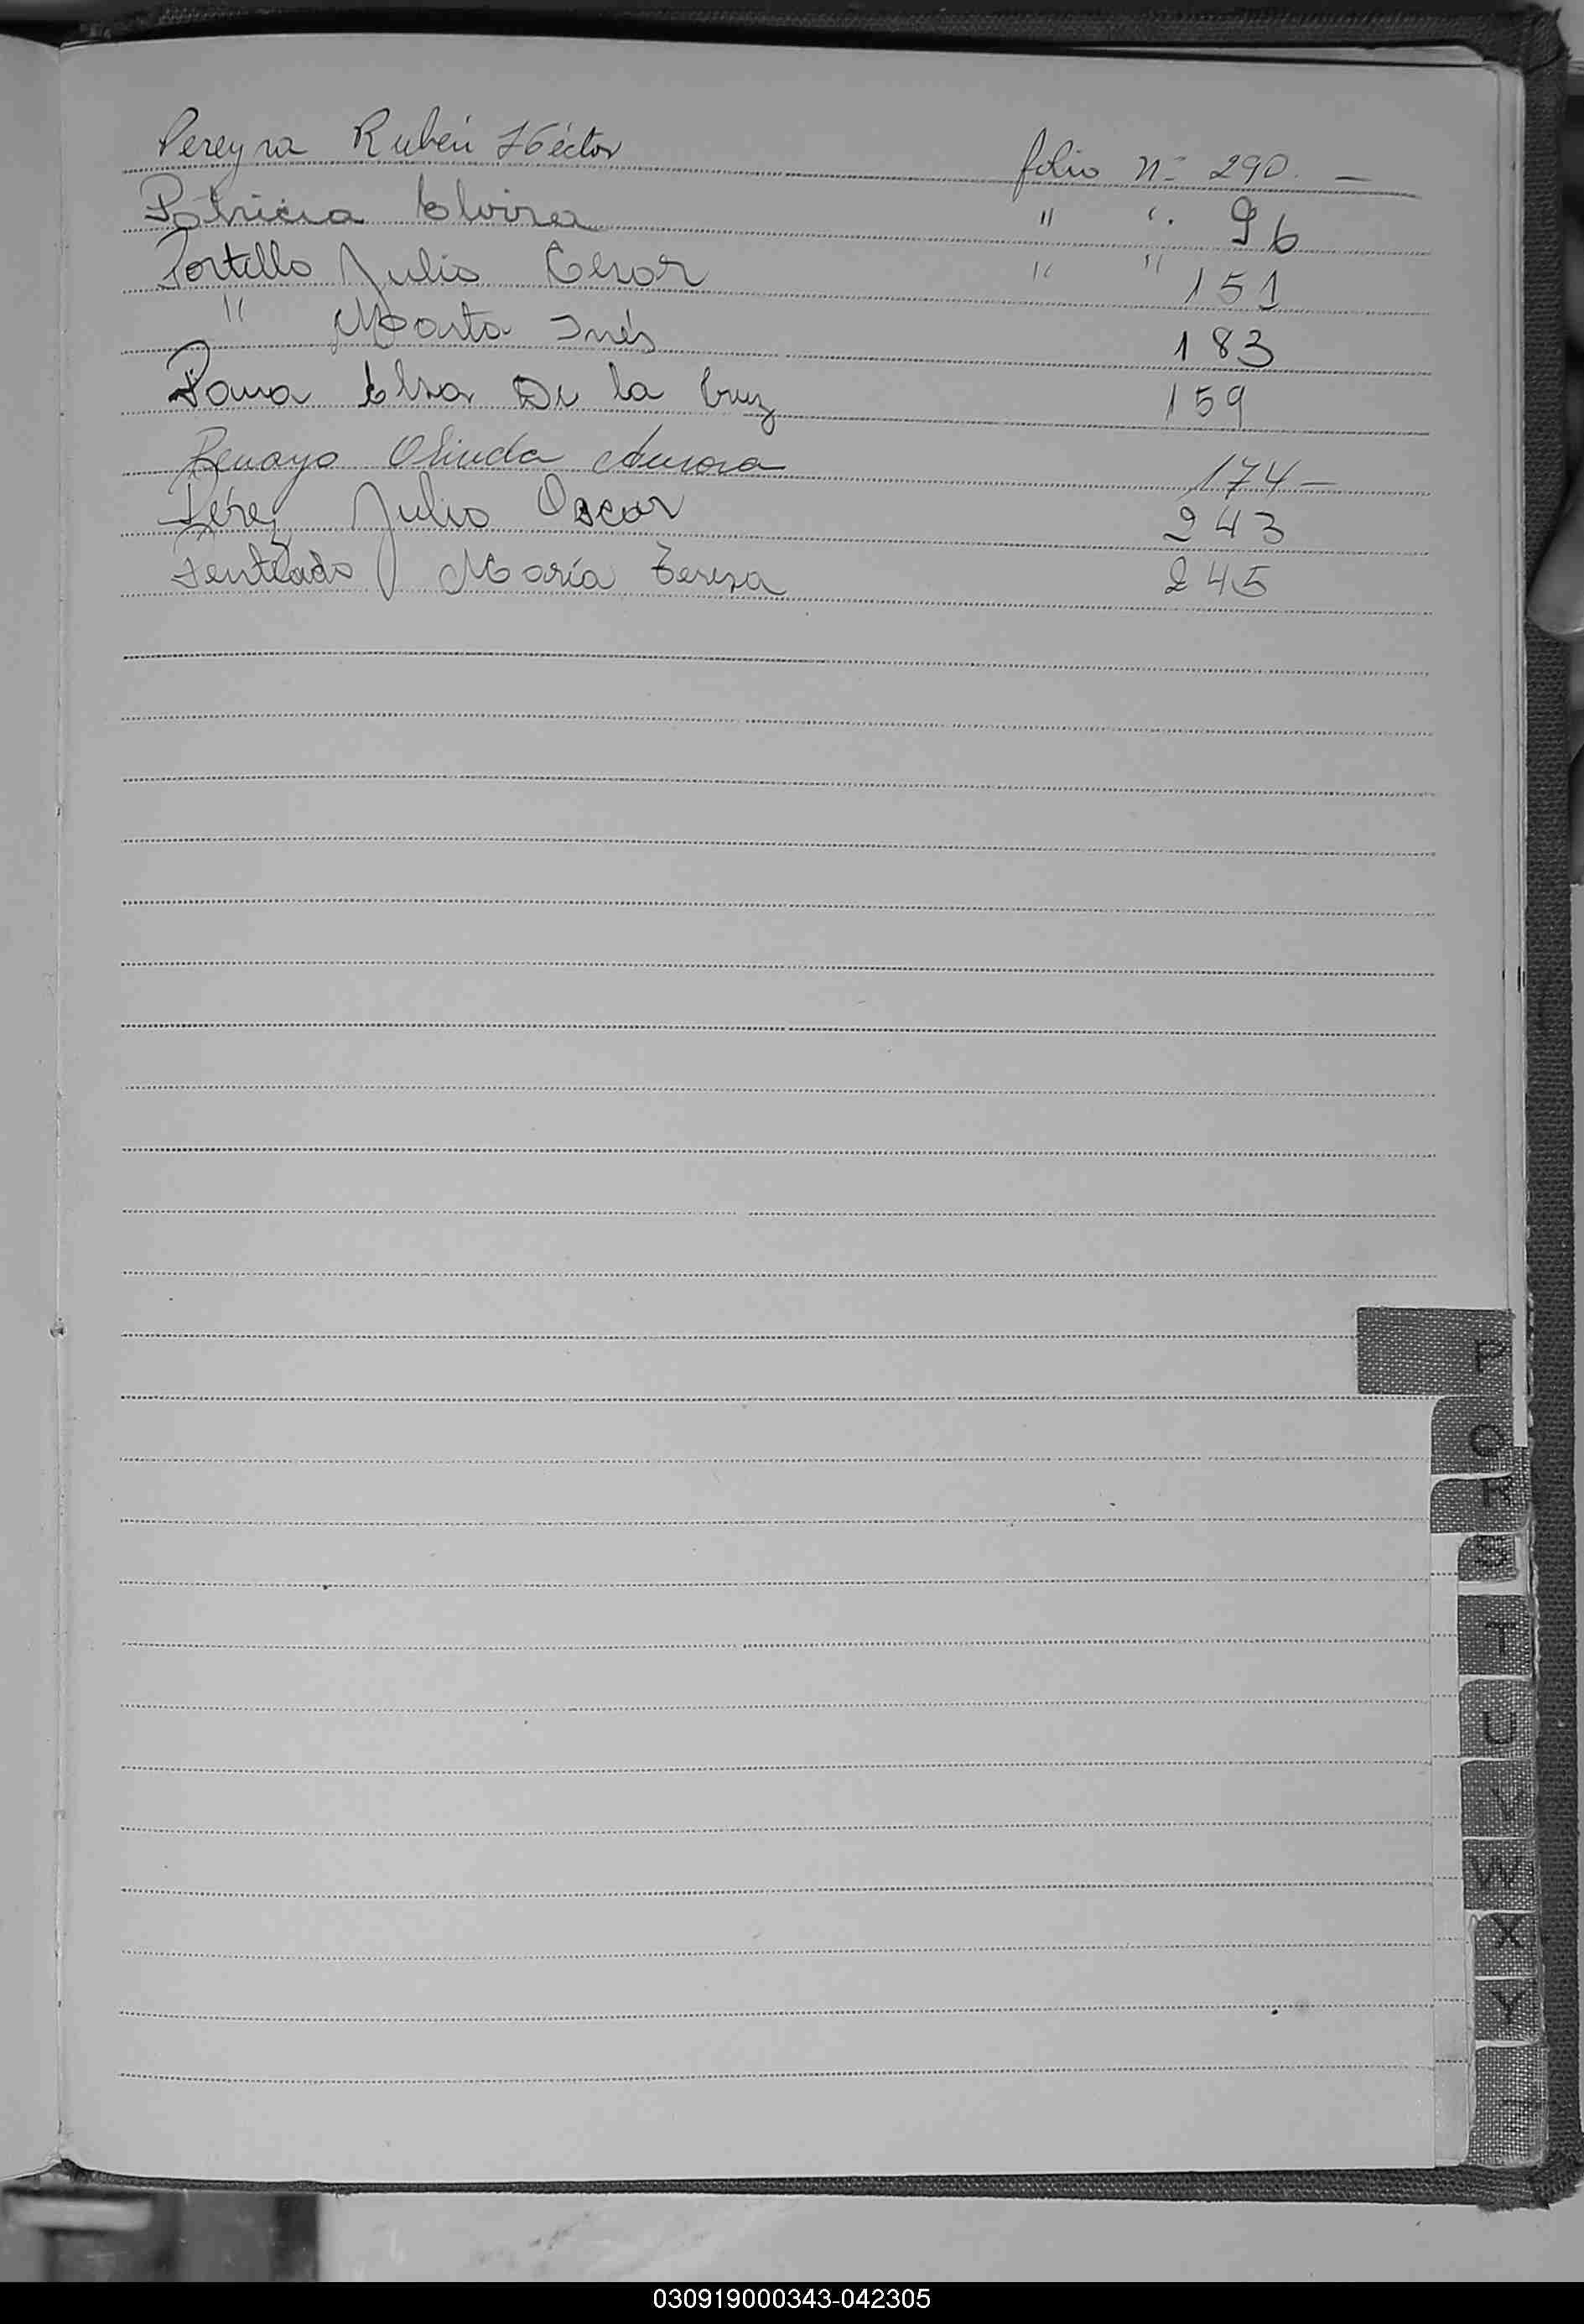 Pereyra Rubén Héctor folio nº 290. —
Patricia Elvira " " 96
Portillo Julio Cesar " " 151
" Marta Inés 183
Pava Elsa De la Cruz 159
Olinda Aurora 174 —
Pérez Julio Oscar 243
María Teresa 245
P
Q
R
S
T
U
V
W
X
Y
Z
030919000343-042305